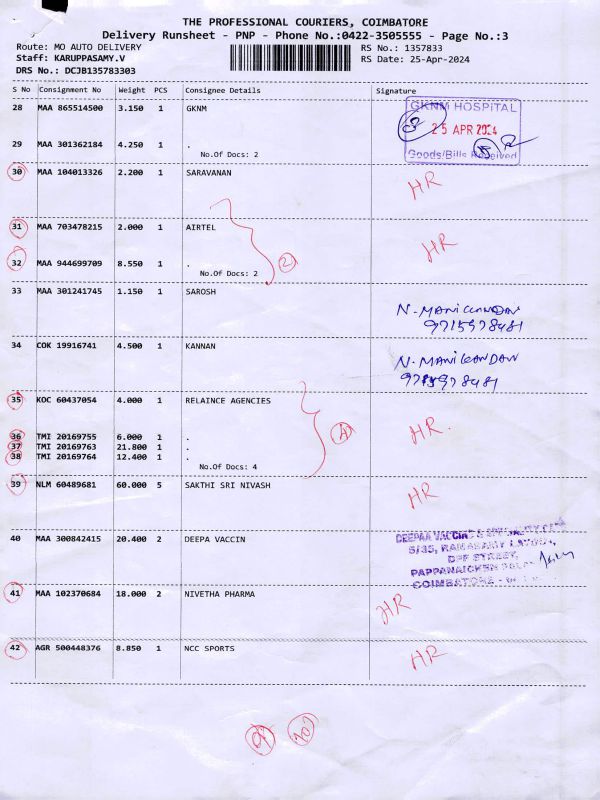 THE PROFESSIONAL COURIERS, COIMBATORE
Delivery Runsheet - PNP - Phone No.:0422-3505555 - Page No.:3
Route: MO AUTO DELIVERY RS No.: 1357833
Staff: KARUPPASAMY.V RS Date: 25-Apr-2024
DRS No.: DCJB135783303
S No Consignment No Weight PCS Consignee Details Signature
28 MAA 865514500 3.150 1 GKNM
GKNM HOSPITAL
25 APR 2024
Goods/Bills Received
29 MAA 301362184 4.250 1 .
No.Of Docs: 2
30 MAA 104013326 2.200 1 SARAVANAN HR
31 MAA 703478215 2.000 1 AIRTEL HR
32 MAA 944699709 8.550 1 .
No.Of Docs: 2
2
33 MAA 301241745 1.150 1 SAROSH N. MANIKANDAN
9715978481
34 COK 19916741 4.500 1 KANNAN N. MANIKANDAN
9715978481
35 KOC 60437054 4.000 1 RELAINCE AGENCIES HR.
36 TMI 20169755 6.000 1 .
37 TMI 20169763 21.800 1 .
38 TMI 20169764 12.400 1 .
No.Of Docs: 4
39 NLM 60489681 60.000 5 SAKTHI SRI NIVASH HR
40 MAA 300842415 20.400 2 DEEPA VACCIN
DEEPAA VACCINE &
5/35, RAMASAMY LAYOUT,
DPF STREET,
PAPPANAICKEN
COIMBATORE -
41 MAA 102370684 18.000 2 NIVETHA PHARMA HR
42 AGR 500448376 8.850 1 NCC SPORTS HR